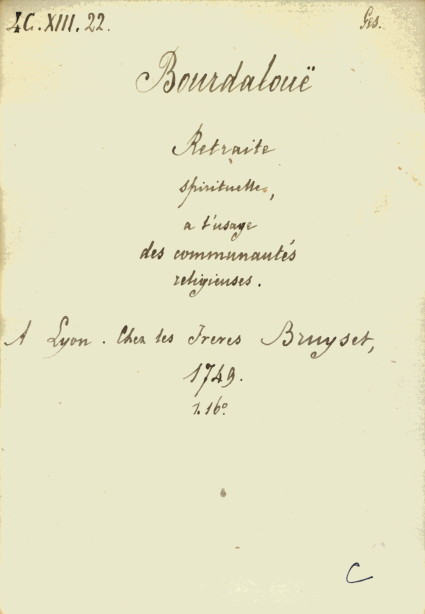 4C.XIII.22. Ges.
Bourdalouë
Retraite
spirituelle,
a l'usage
des communautés
religieuses.
A Lyon. Chez les Freres Bruyset,
1749.
1.16°
C